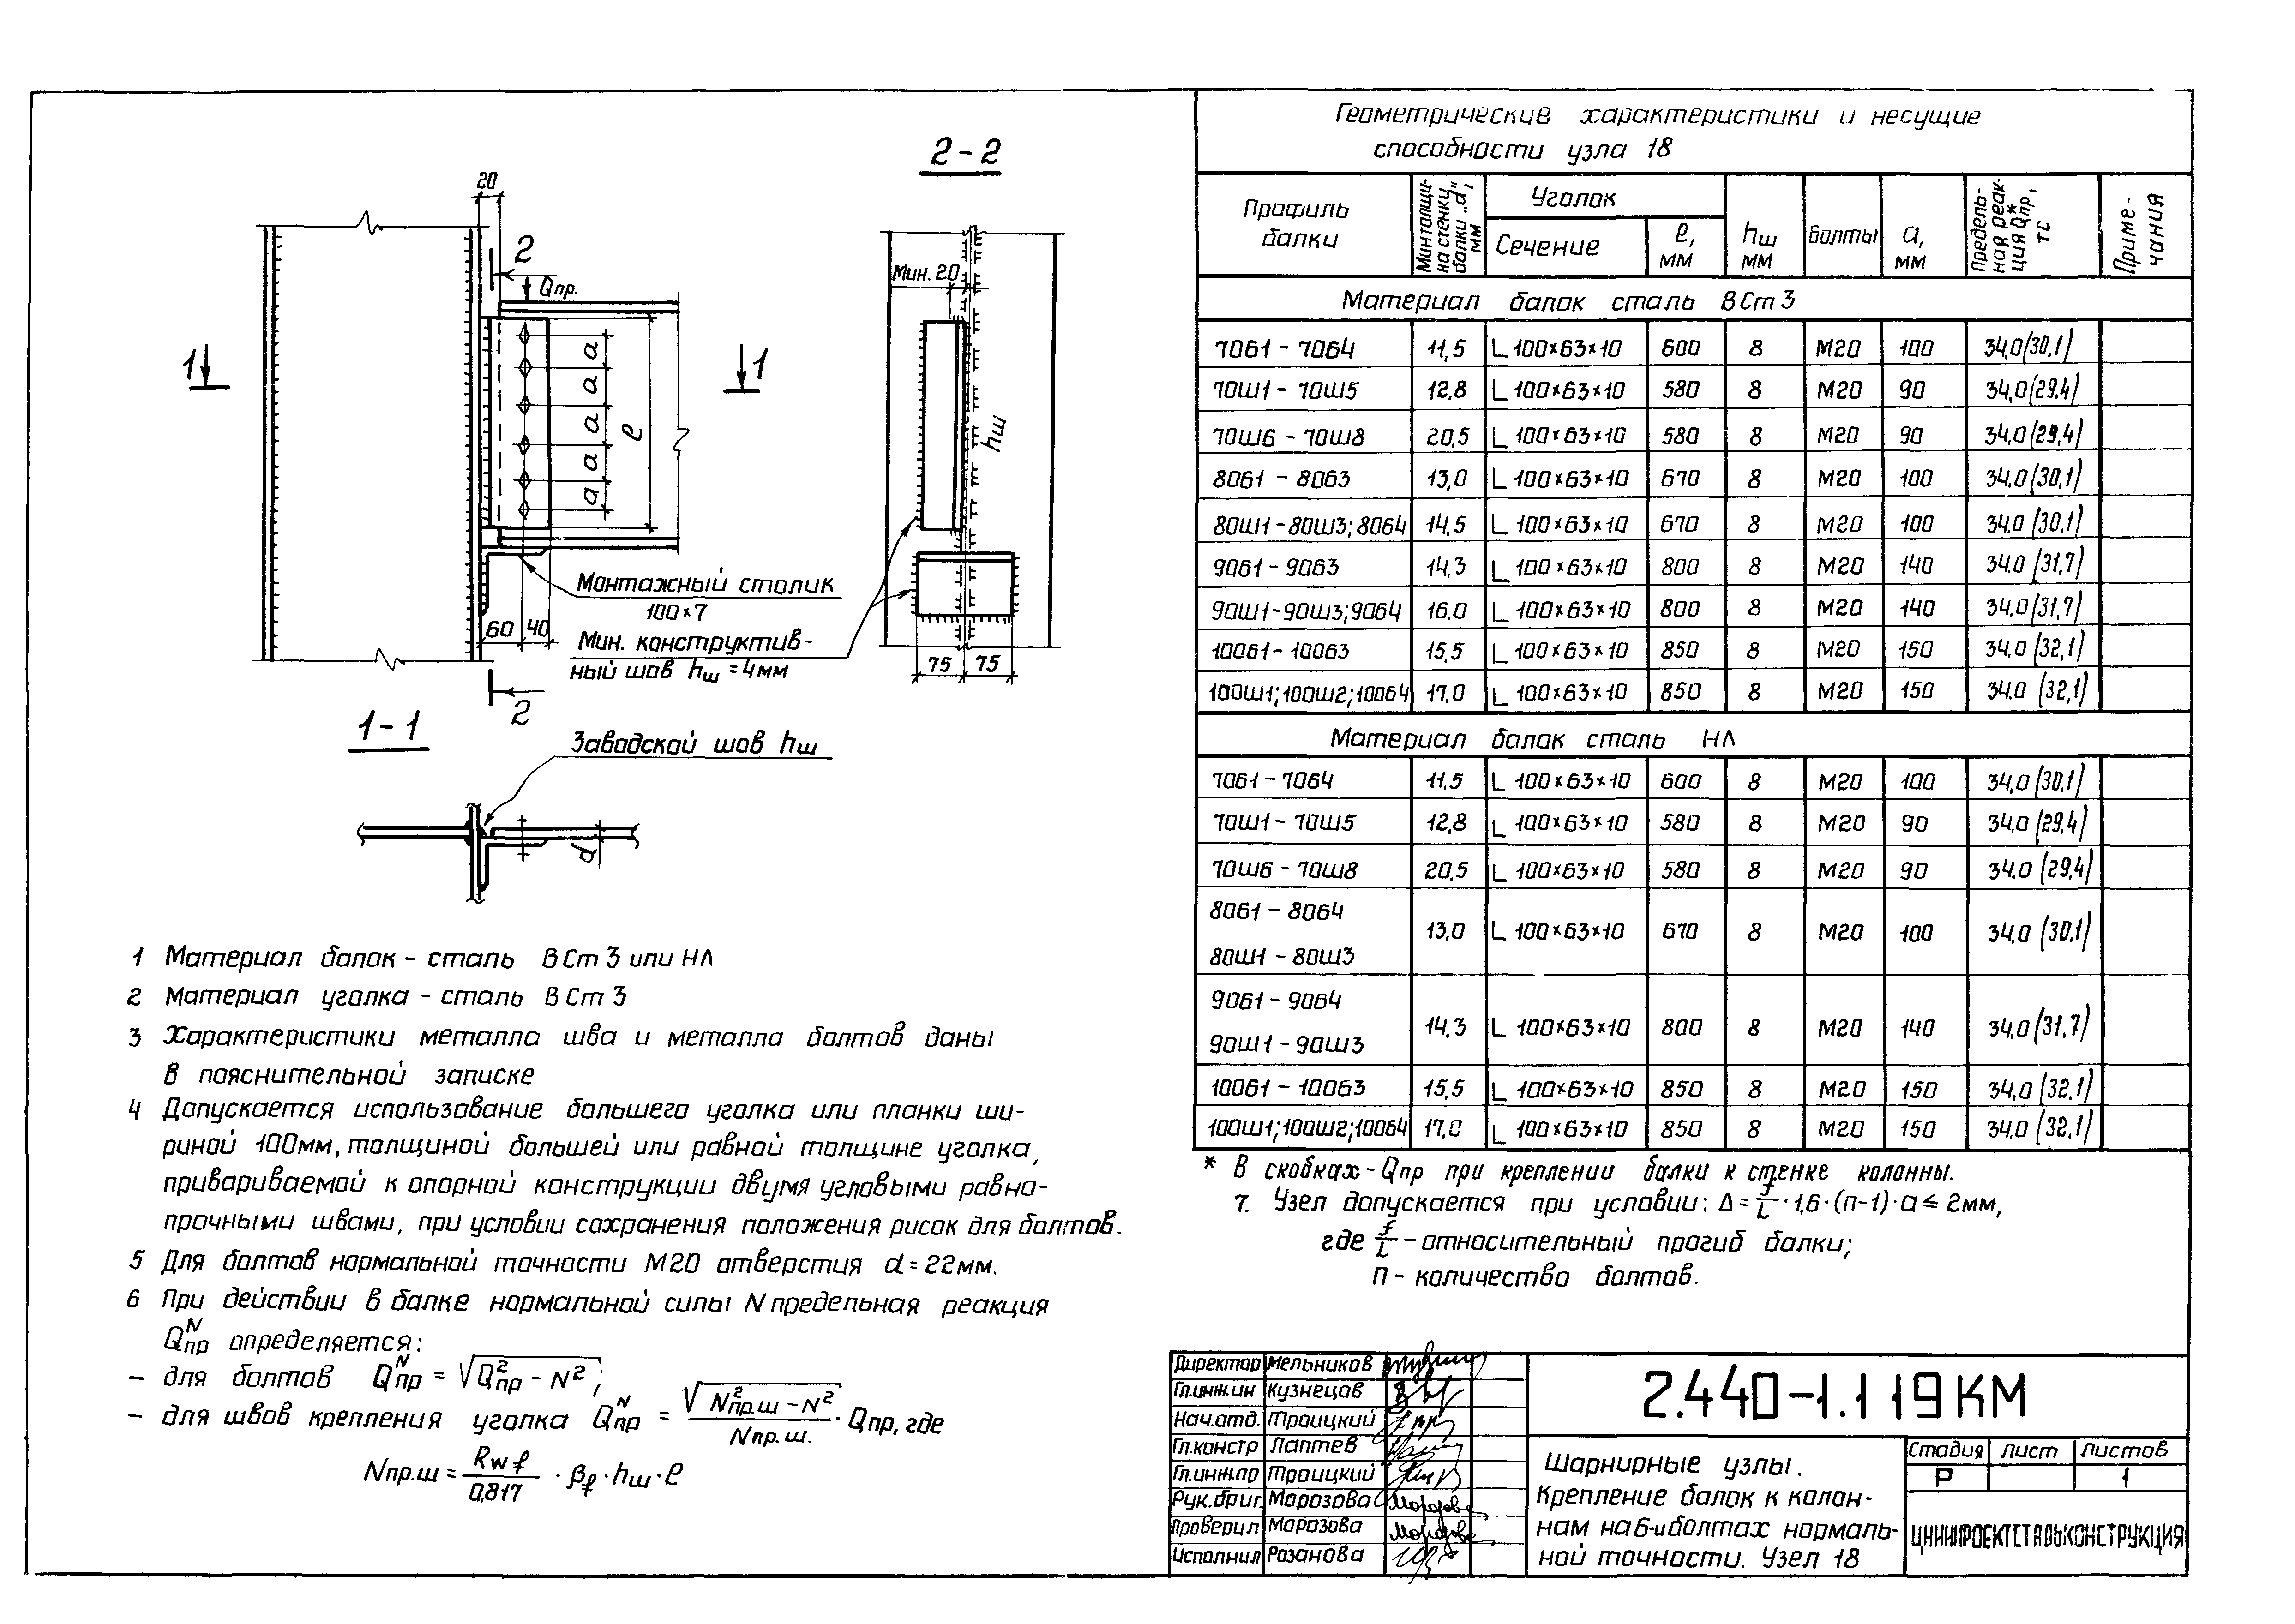 2-2
20
2
Qпр.
1
1
а
а
а
а
а
е
Мин. 20
hш
Монтажный столик
100×7
60
40
Мин. конструктив-
ный шов hш = 4мм
75
75
2
1-1
Заводской шов hш
d
1 Материал балок - сталь ВСт3 или НЛ
2 Материал уголка - сталь ВСт3
3 Характеристики металла шва и металла болтов даны
в пояснительной записке
4 Допускается использование большего уголка или планки ши-
риной 100мм, толщиной большей или равной толщине уголка,
привариваемой к опорной конструкции двумя угловыми равно-
прочными швами, при условии сохранения положения рисок для болтов.
5 Для болтов нормальной точности М20 отверстия d = 22мм.
6 При действии в балке нормальной силы N предельная реакция
Qпр^N определяется:
- для болтов Qпр^N = √(Qпр² - N²);
- для швов крепления уголка Qпр^N = √(N²пр.ш - N²) / Nпр.ш. · Qпр, где
Nпр.ш = Rwf / 0,817 · βf · hш · е
Геометрические характеристики и несущие
способности узла 18
Профиль балки | Мин толщи-на стенки балки „d", мм | Уголок | hш мм | Болты | а, мм | Предель-ная реак-ция Qпр,* тс | Приме-чания
Сечение | е, мм
Материал балок сталь ВСт3
70Б1 - 70Б4 11,5 L 100×63×10 600 8 М20 100 34,0 (30,1)
70Ш1 - 70Ш5 12,8 L 100×63×10 580 8 М20 90 34,0 (29,4)
70Ш6 - 70Ш8 20,5 L 100×63×10 580 8 М20 90 34,0 (29,4)
80Б1 - 80Б3 13,0 L 100×63×10 670 8 М20 100 34,0 (30,1)
80Ш1-80Ш3; 80Б4 14,5 L 100×63×10 670 8 М20 100 34,0 (30,1)
90Б1 - 90Б3 14,3 L 100×63×10 800 8 М20 140 34.0 (31,7)
90Ш1-90Ш3; 90Б4 16,0 L 100×63×10 800 8 М20 140 34.0 (31,7)
100Б1 - 100Б3 15,5 L 100×63×10 850 8 М20 150 34.0 (32,1)
100Ш1; 100Ш2; 100Б4 17,0 L 100×63×10 850 8 М20 150 34.0 (32,1)
Материал балок сталь НЛ
70Б1 - 70Б4 11,5 L 100×63×10 600 8 М20 100 34,0 (30,1)
70Ш1 - 70Ш5 12,8 L 100×63×10 580 8 М20 90 34,0 (29,4)
70Ш6 - 70Ш8 20,5 L 100×63×10 580 8 М20 90 34.0 (29,4)
80Б1 - 80Б4
80Ш1 - 80Ш3
13,0 L 100×63×10 670 8 М20 100 34,0 (30,1)
90Б1 - 90Б4
90Ш1 - 90Ш3
14,3 L 100×63×10 800 8 М20 140 34,0 (31,7)
100Б1 - 100Б3 15,5 L 100×63×10 850 8 М20 150 34,0 (32,1)
100Ш1; 100Ш2; 100Б4 17,0 L 100×63×10 850 8 М20 150 34,0 (32,1)
* В скобках - Qпр при креплении балки к стенке колонны.
7. Узел допускается при условии: Δ = f/L · 1,6 · (п-1) · а ≤ 2мм,
где f/L - относительный прогиб балки;
п - количество болтов.
Директор Мельников
Гл.инж.ин Кузнецов
Нач.отд. Троицкий
Гл.констр Лаптев
Гл.инж.пр Троицкий
Рук.бриг. Морозова
Проверил Морозова
Исполнил Розанова
2.440-1.1 19КМ
Шарнирные узлы.
Крепление балок к колон-
нам на 6-и болтах нормаль-
ной точности. Узел 18
Стадия Лист Листов
Р 1
ЦНИИПРОЕКТСТАЛЬКОНСТРУКЦИЯ